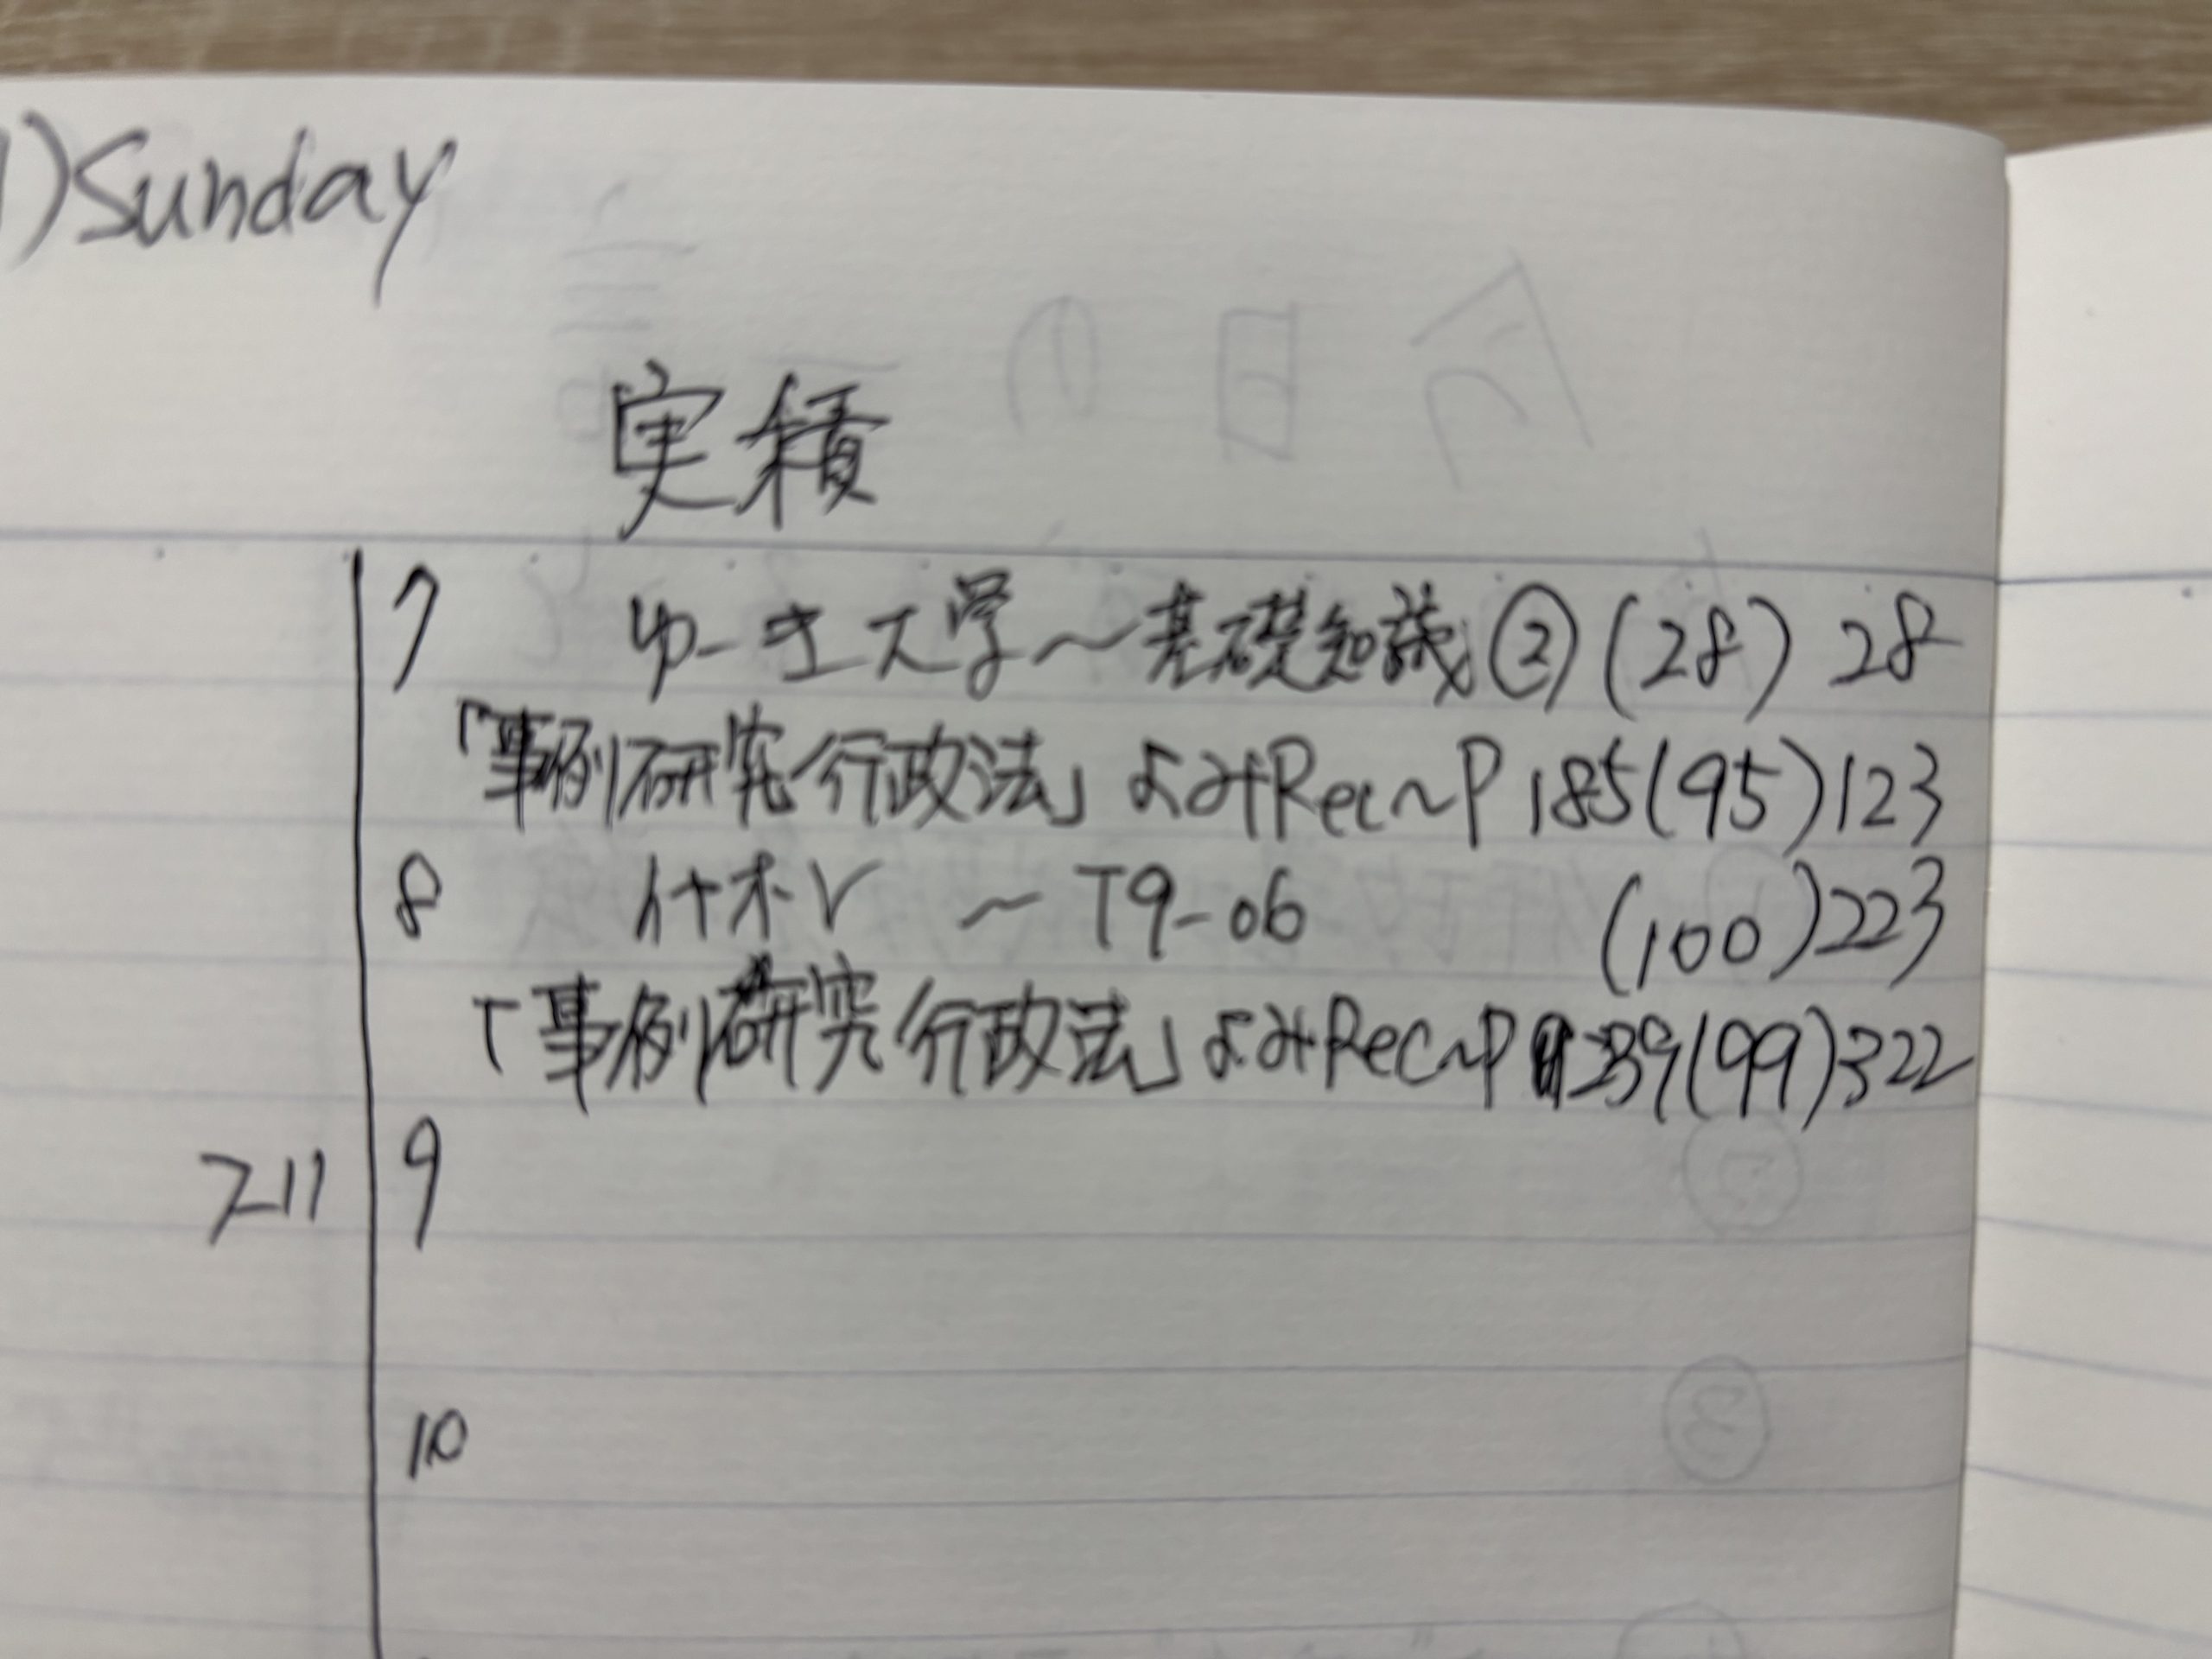 1)Sunday
実積
7 ゆーき大学～基礎知識② (28) 28
「事例研究行政法」よみRec～P185(95)123
8 ～T9-06 (100)223
「事例研究行政法」よみRec～P239(99)322
9
10